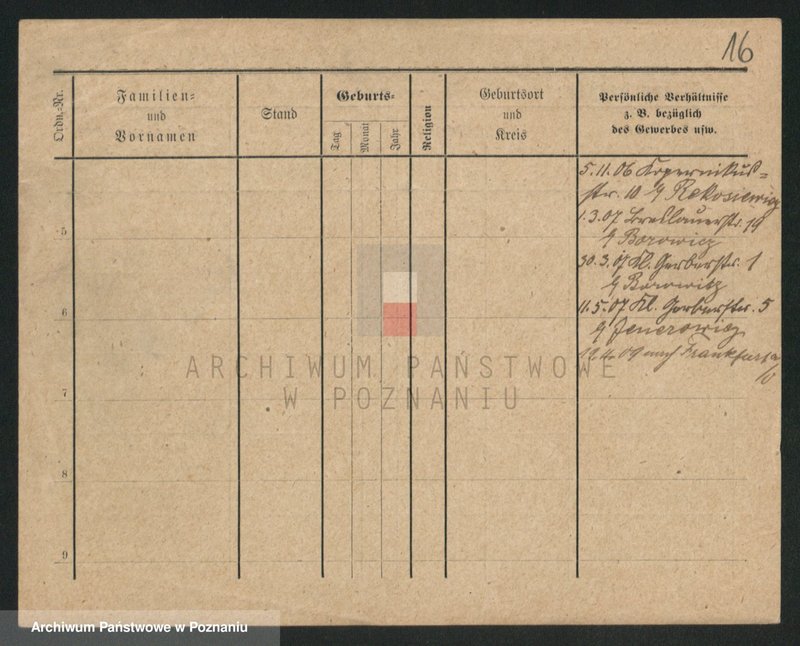 16
Ordn.-Nr.
Familien-
und
Vornamen
Stand
Geburts-
Tag
Monat
Jahr
Religion
Geburtsort
und
Kreis
Persönliche Verhältnisse
z. B. bezüglich
des Gewerbes usw.
5.11.06 Kopernikus-
str. 10 Rekosiewicz
1.3.07 Breslauerstr. 19
Borowicz
30.3.07 Kl. Gerberstr. 1
Borowitz
11.5.07 Kl. Gerberstr. 5
Jenerowicz
12.4.09 nach Frankfurt a
5
6
7
8
9
ARCHIWUM PAŃSTWOWE
W POZNANIU
Archiwum Państwowe w Poznaniu